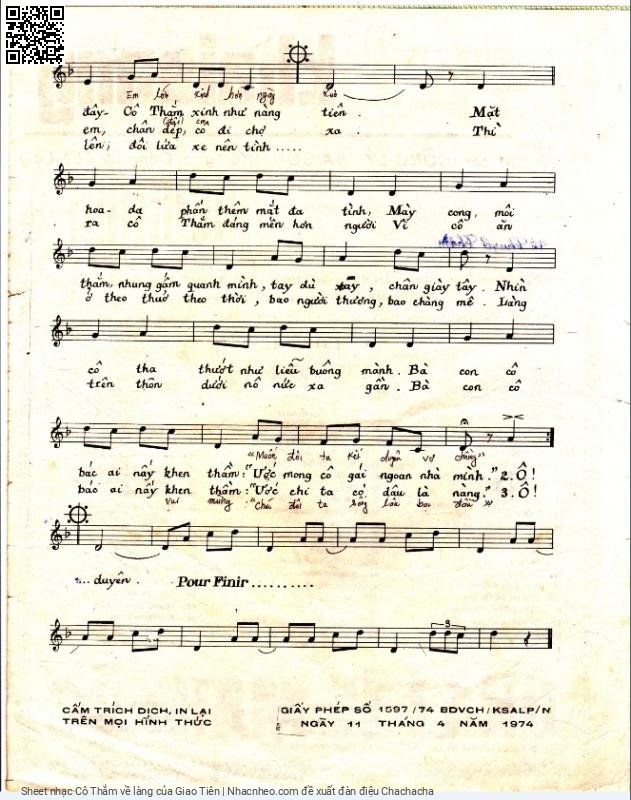 Em lớn xinh hơn ngày xưa
đây- Cô Thắm xinh như nàng tiên. Mặt
em, chân đẹp, có đi chợ xa. Thì
lên; đôi lứa xe nên tình.....
hoa- da phấn thêm mắt đa tình, Mày cong, môi
ra cô Thắm đáng mến hơn người Vì cô ăn
thắm, nhung gấm quanh mình, tay dù xoay, chân giày tây. Nhìn
ở theo thuở theo thời, bao người thương, bao chàng mê. Làng
cô tha thướt như liễu buông mành. Bà con cô
trên thôn dưới nô nức xa gần. Bà con cô
"Muốn đôi ta kết duyên vợ chồng"
bác ai nấy khen thầm: "Ước mong cô gái ngoan nhà mình." 2. Ô!
bác ai nấy khen thầm: "Ước chi ta có dâu là nàng." 3. Ô!
vui mừng "Chú đôi ta sống lâu bạc đầu"
... duyên. Pour Finir..........
3
CẤM TRÍCH DỊCH, IN LẠI
TRÊN MỌI HÌNH THỨC
GIẤY PHÉP SỐ 1597/74 BDVCH/KSALP/N
NGÀY 11 THÁNG 4 NĂM 1974
Sheet nhạc Cô Thắm về làng của Giao Tiên | Nhacnheo.com đề xuất đàn điệu Chachacha